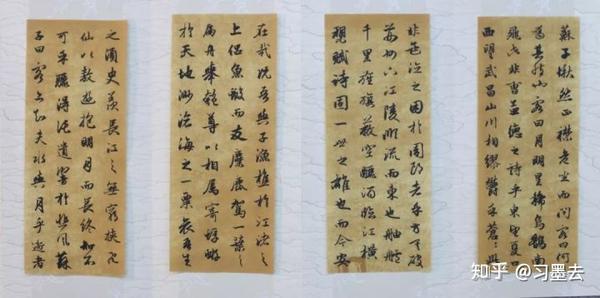 蘇子愀然正襟危坐而問客曰何
為其然也客曰月明星稀烏鵲南
飛此非曹孟德之詩乎東望夏口
西望武昌山川相繆鬱乎蒼蒼此
非孟德之困於周郎者乎方其破
荊州下江陵順流而東也舳艫
千里旌旗蔽空釃酒臨江橫
槊賦詩固一世之雄也而今安
在哉況吾與子漁樵於江渚之
上侶魚蝦而友麋鹿駕一葉之
扁舟舉匏尊以相屬寄蜉蝣
於天地渺滄海之一粟哀吾生
之須臾羨長江之無窮挾飛
仙以遨遊抱明月而長終知不
可乎驟得託遺響於悲風蘇
子曰客亦知夫水與月乎逝者
知乎 @习墨去